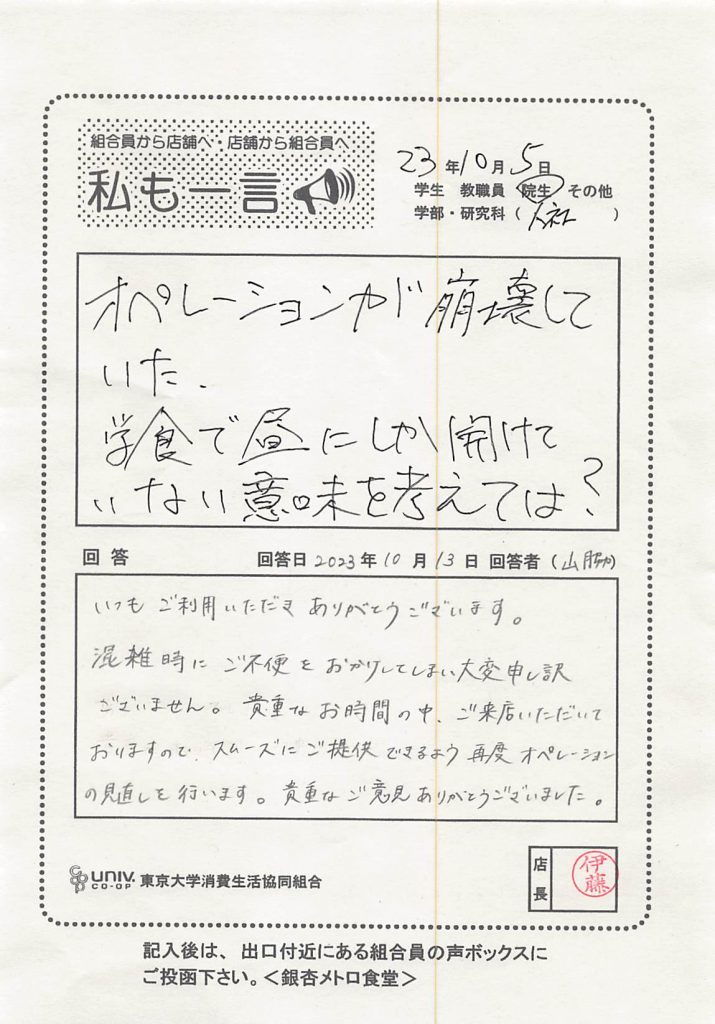 組合員から店舗へ・店舗から組合員へ
私も一言
23年10月5日
学生 教職員 院生 その他
学部・研究科（人社）
オペレーションが崩壊して
いた.
学食で昼にしか開けて
いない意味を考えては?
回答 回答日2023年10月13日 回答者（山脇）
いつもご利用いただきありがとうございます。
混雑時にご不便をおかけしてしまい大変申し訳
ございません。貴重なお時間の中、ご来店いただいて
おりますので、スムーズにご提供できるよう再度オペレーション
の見直しを行います。貴重なご意見ありがとうございました。
UNIV.
CO-OP
東京大学消費生活協同組合
店長
伊藤
記入後は、出口付近にある組合員の声ボックスに
ご投函下さい。＜銀杏メトロ食堂＞